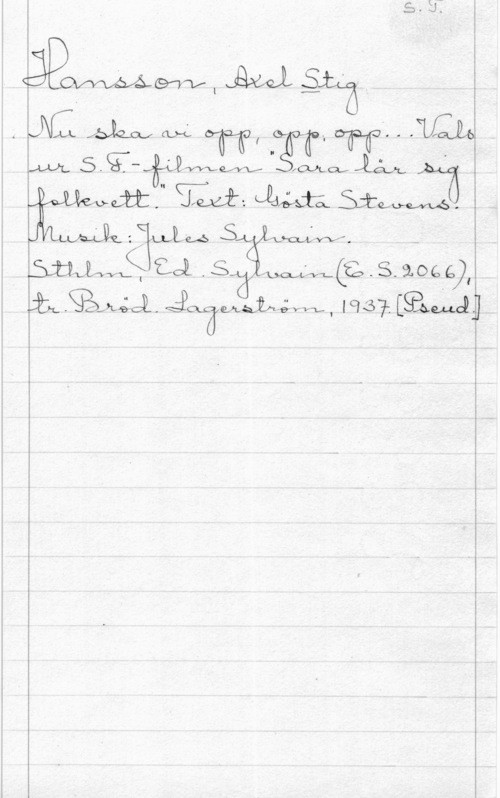 S. F.
Hansson, Axel Stig
Nu ska vi opp, opp, opp... Vals
ur S.F.-filmen "Sara lär sig
folkvett." Text: Gösta Stevens.
Musik: Jules Sylvain.
Sthlm, Ed. Sylvain (E.S. 2066),
tr. Bröd. Lagerström, 1937. [Pseud.]